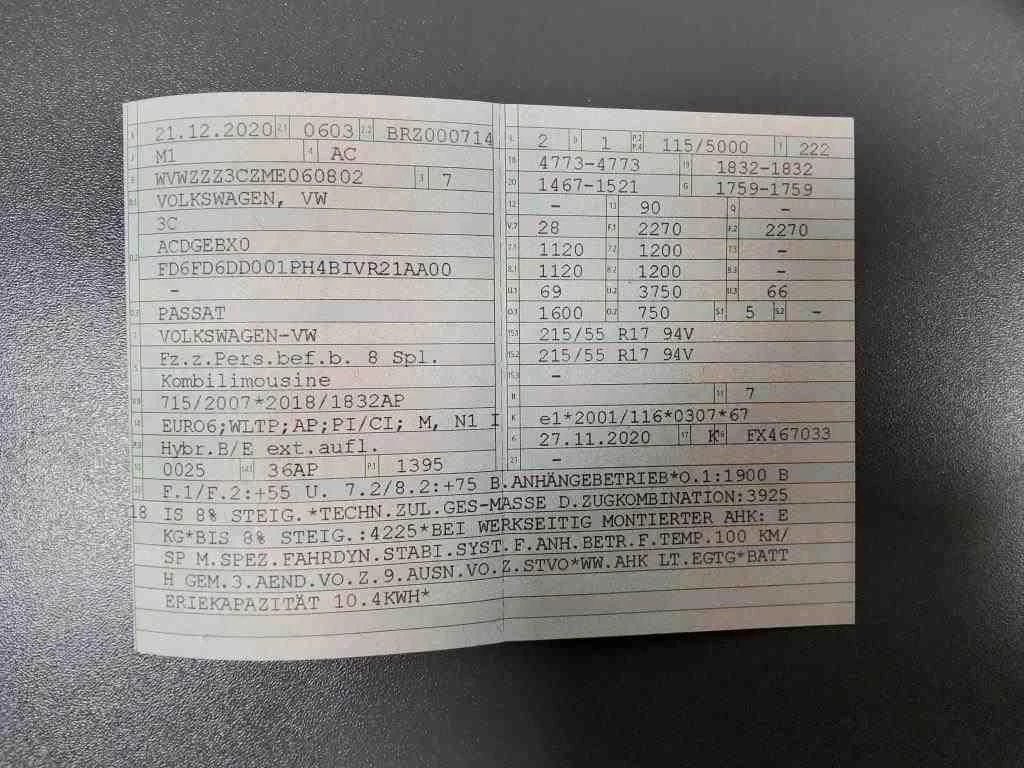 21.12.2020 2.1 0603 2.2 BRZ000714
J M1 4 AC
E WVWZZZ3CZME060802 3 7
D.1 VOLKSWAGEN, VW
3C
D.2 ACDGEBX0
FD6FD6DD001PH4BIVR21AA00
-
D.3 PASSAT
VOLKSWAGEN-VW
5 Fz.z.Pers.bef.b. 8 Spl.
Kombilimousine
V.9 715/2007*2018/1832AP
14 EURO6;WLTP;AP;PI/CI; M, N1 I
P.3 Hybr.B/E ext.aufl.
10 0025 14.1 36AP P.1 1395
L 2 9 1 P.2 P.4 115/5000 T 222
18 4773-4773 19 1832-1832
20 1467-1521 G 1759-1759
12 - 13 90 Q -
V.7 28 F.1 2270 F.2 2270
7.1 1120 7.2 1200 7.3 -
8.1 1120 8.2 1200 8.3 -
U.1 69 U.2 3750 U.3 66
O.1 1600 O.2 750 S.1 5 S.2 -
15.1 215/55 R17 94V
15.2 215/55 R17 94V
15.3 -
R 11 7
K e1*2001/116*0307*67
6 27.11.2020 17 K 16 FX467033
21 -
F.1/F.2:+55 U. 7.2/8.2:+75 B.ANHÄNGEBETRIEB*O.1:1900 B
18 IS 8% STEIG.*TECHN.ZUL.GES-MASSE D.ZUGKOMBINATION:3925
KG*BIS 8% STEIG.:4225*BEI WERKSEITIG MONTIERTER AHK: E
SP M.SPEZ.FAHRDYN.STABI.SYST.F.ANH.BETR.F.TEMP.100 KM/
H GEM.3.AEND.VO.Z.9.AUSN.VO.Z.STVO*WW.AHK LT.EGTG*BATT
ERIEKAPAZITÄT 10.4KWH*